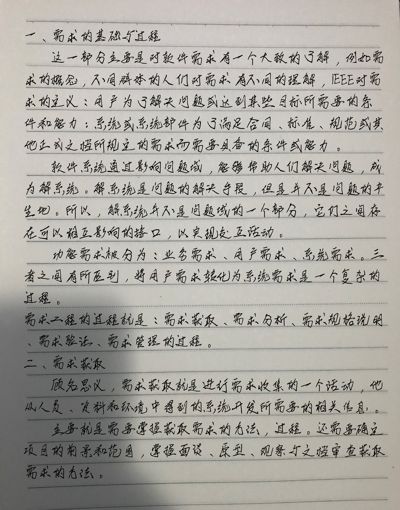 一、需求的基础与过程
这一部分主要是对软件需求有一个大致的了解，例如需
求的概念，不同群体的人们对需求有不同的理解，IEEE对需
求的定义：用户为了解决问题或达到某些目标所需要的条
件和能力；系统或系统部件为了满足合同、标准、规范或其
他正式文档所规定的需求而需要具备的条件或能力。
软件系统通过影响问题域，能够帮助人们解决问题，成
为解系统。解系统是问题的解决手段，但是并不是问题的产
生地。所以，解系统并不是问题域的一个部分，它们之间存
在可以相互影响的接口，以实现交互活动。
功能需求被分为：业务需求、用户需求、系统需求。三
者之间有所区别，将用户需求转化为系统需求是一个复杂的
过程。
需求工程的过程就是：需求获取、需求分析、需求规格说明
、需求验证、需求管理的过程。
二、需求获取
顾名思义，需求获取就是进行需求收集的一个活动，他
从人员、资料和环境中得到的系统开发所需要的相关信息。
主要就是需要掌握获取需求的方法，过程。还需要确立
项目的前景和范围，掌握面谈、原型、观察与文档审查获取
需求的方法。